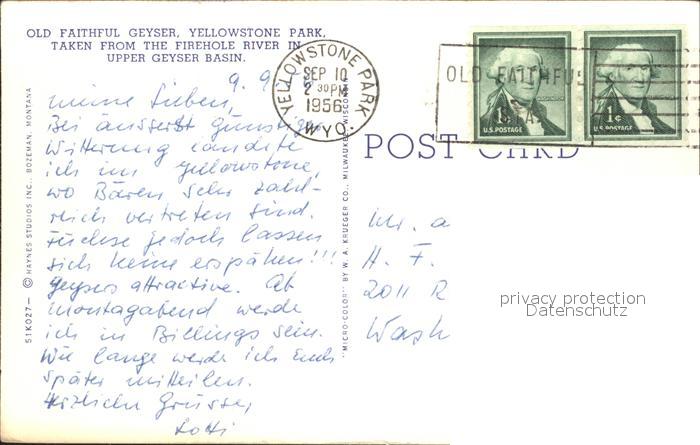 OLD FAITHFUL GEYSER, YELLOWSTONE PARK,
TAKEN FROM THE FIREHOLE RIVER IN
UPPER GEYSER BASIN.
YELLOWSTONE PARK
SEP 10
2 30 PM
1956
WYO.
OLD FAITHFUL
1¢
U.S. POSTAGE
1¢
U.S. POSTAGE
POST CARD
9. 9.
meine Lieben,
Bei äusserst günstiger
Witterung landete
ich im Yellowstone,
wo Bären sehr zahl-
reich vertreten sind.
Füchse jedoch lassen
sich keine erspähen!!!
Geysers attractive. Ab
Montagabend werde
ich in Billings sein.
Wie lange werde ich Euch
später mitteilen.
Herzliche Grüsse,
Lotti
Mr. a
H. F.
2011 R
Wash
51K027— © HAYNES STUDIOS INC., BOZEMAN, MONTANA
"MICRO-COLOR" BY W. A. KRUEGER CO., MILWAUKEE, WISCONSIN
privacy protection
Datenschutz